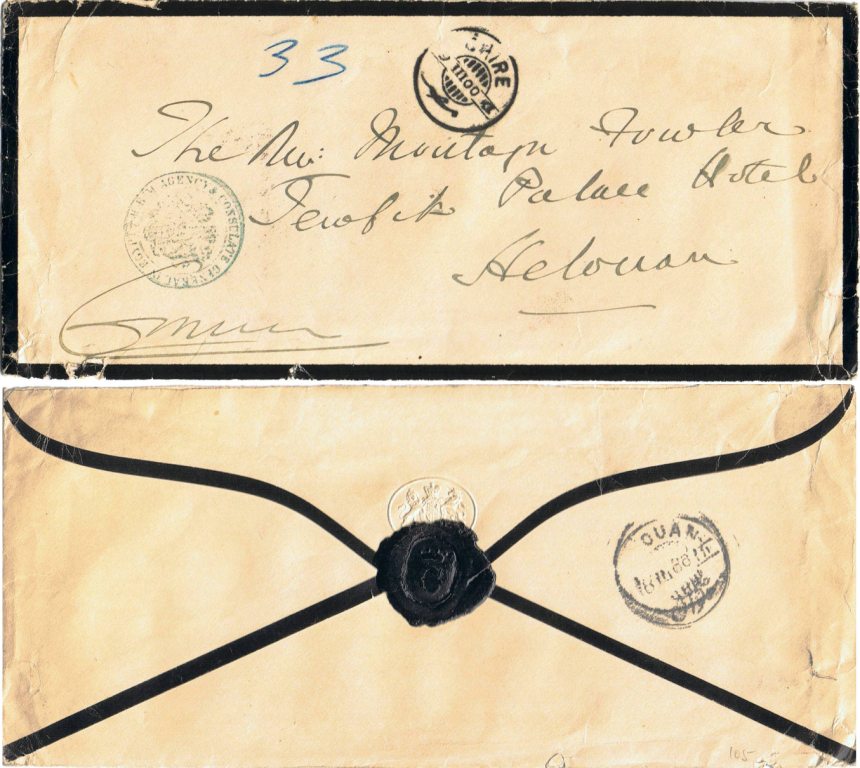 33
CAIRE
III 00
The Rev: Montagu Fowler
Tewfik Palace Hotel
Helouan
H.B.M. AGENCY & CONSULATE GENERAL IN EGYPT
OUAN
105